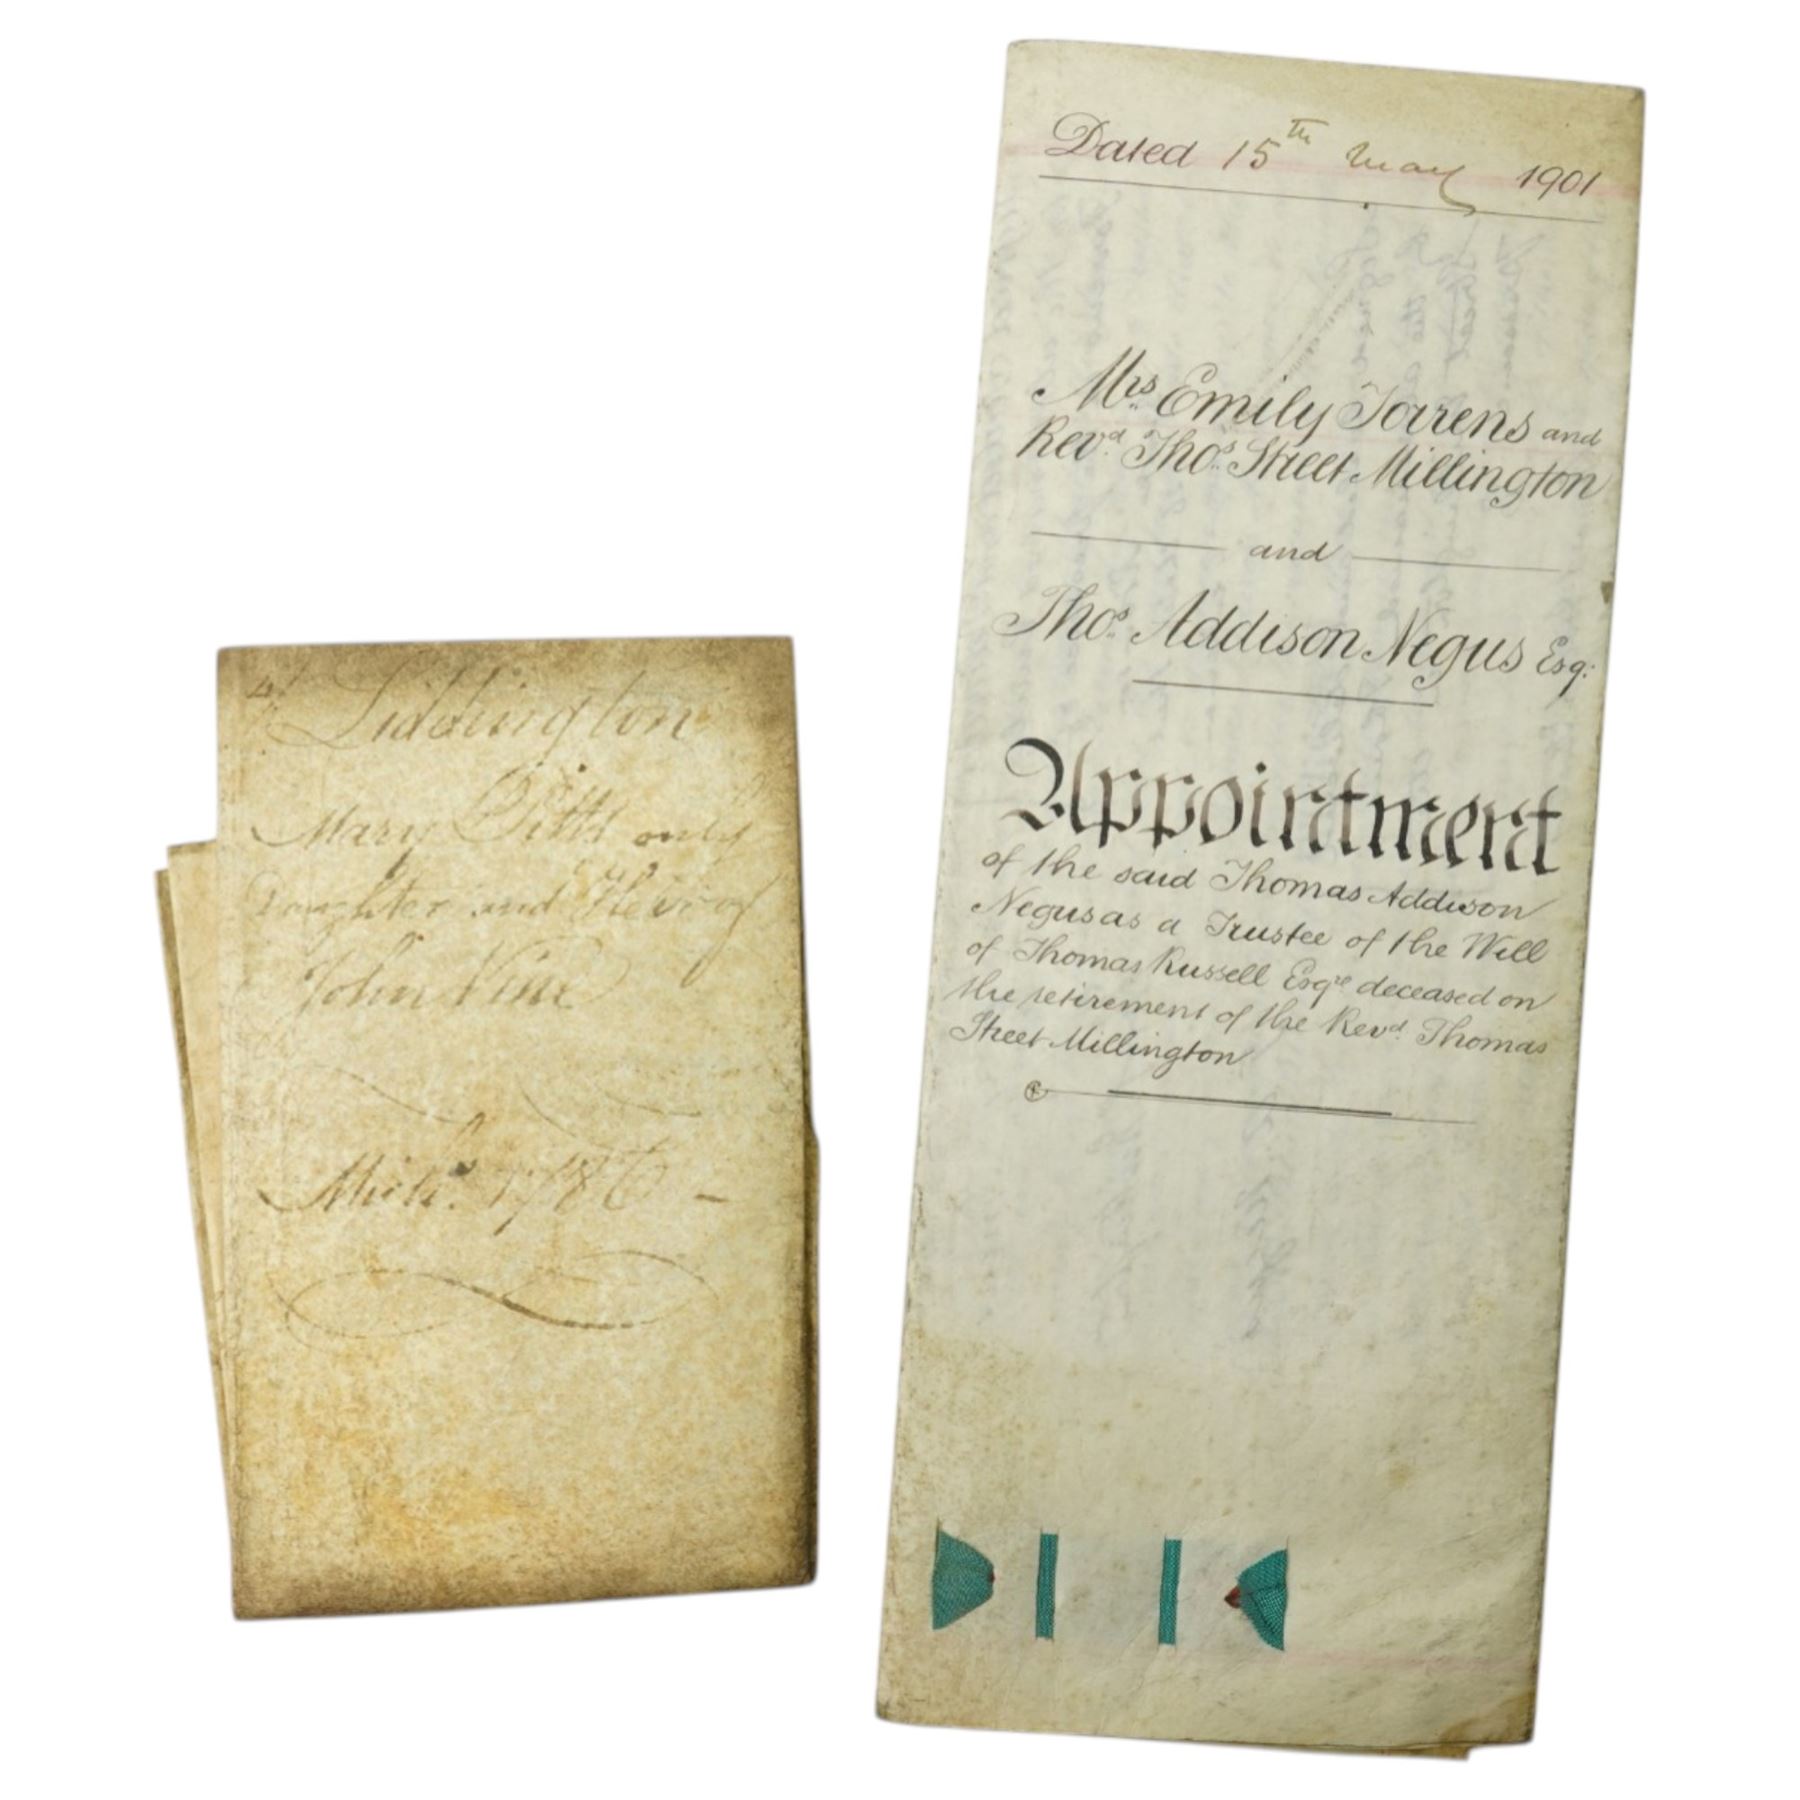 Liddington
Mary Pitts only
Daughter and Heir of
John Vine
Mich.s 1786
Dated 15th May 1901
Mrs Emily Torrens and
Revd. Thos. Street Millington
and
Thos. Addison Negus Esq:
Appointment
of the said Thomas Addison
Negus as a Trustee of the Will
of Thomas Russell Esqre deceased on
the retirement of the Revd. Thomas
Street Millington